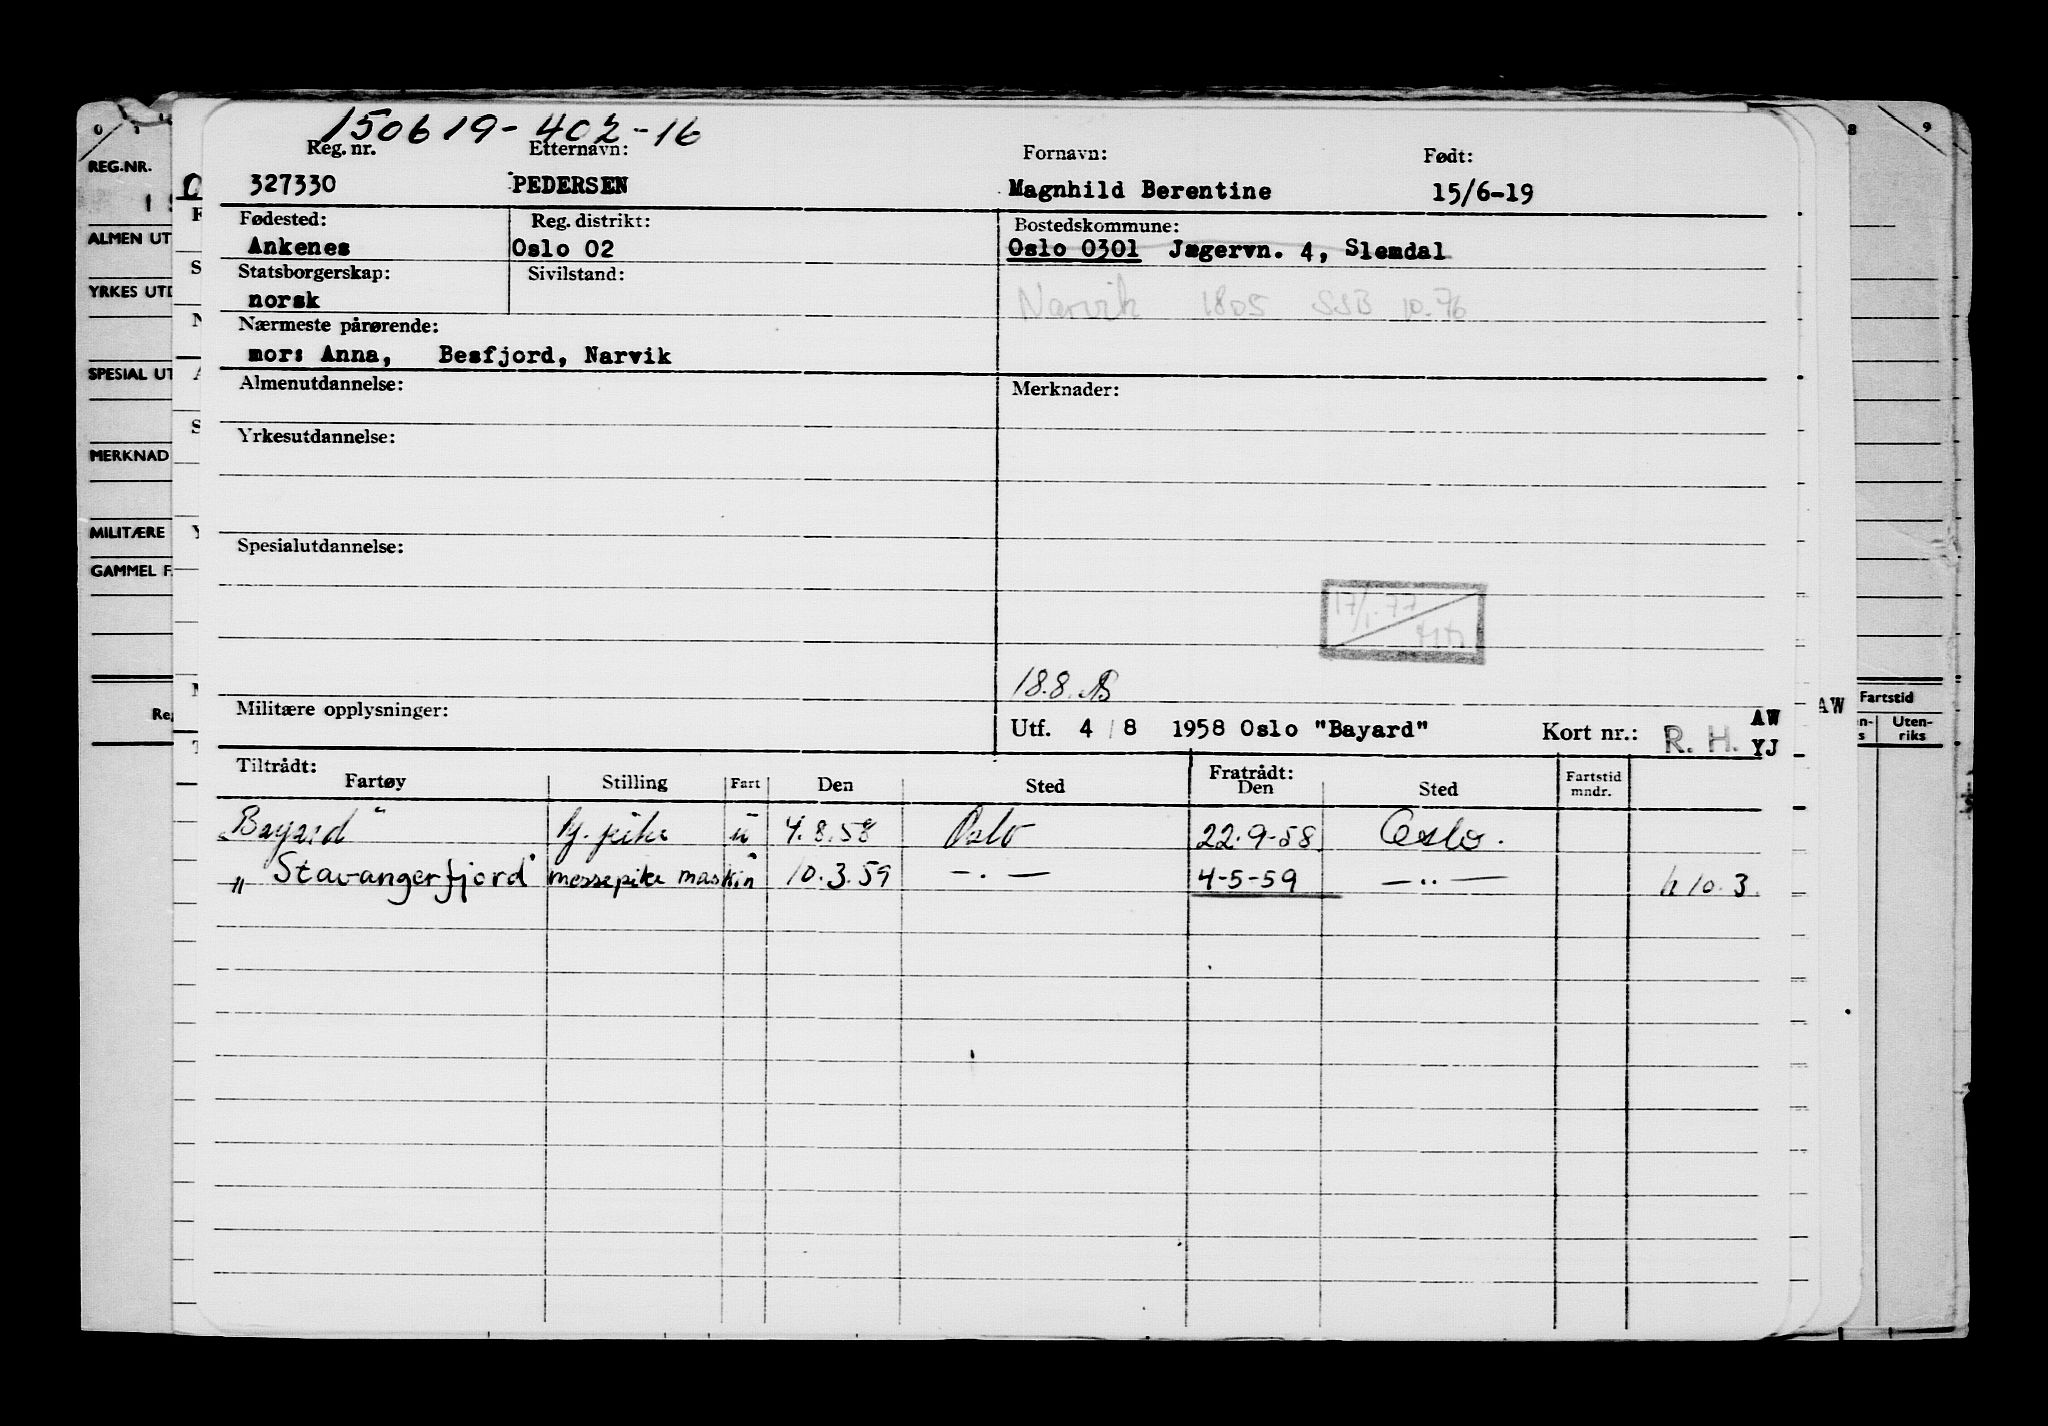 150619-402-16
Reg. nr. Etternavn: Fornavn: Født:
327330 PEDERSEN Magnhild Berentine 15/6-19
Fødested: Reg. distrikt: Bostedskommune:
Ankenes Oslo 02 Oslo 0301 Jægervn. 4, Slemdal
Statsborgerskap: Sivilstand:
norsk Narvik 1805 SSB 10.76
Nærmeste pårørende:
mor: Anna, Besfjord, Narvik
Almenutdannelse: Merknader:
Yrkesutdannelse:
Spesialutdannelse:
17/1-77
18.8.
Militære opplysninger: Utf. 4/8 1958 Oslo "Bayard" Kort nr.: R. H. AW
YJ
Tiltrådt: Fratrådt:
Fartøy Stilling Fart Den Sted Den Sted Fartstid mndr.
"Bayard" pike u 4.8.58 Oslo 22.9-58 Oslo.
"Stavangerfjord" messepike maskin " 10.3.59 — . — 4-5-59 — .. — 10.3.
REG.NR.
ALMEN UT
YRKES UTD
SPESIAL UT
MERKNAD
MILITÆRE
GAMMEL F.
Reg
8 9
AW
Fartstid
Uten-
riks